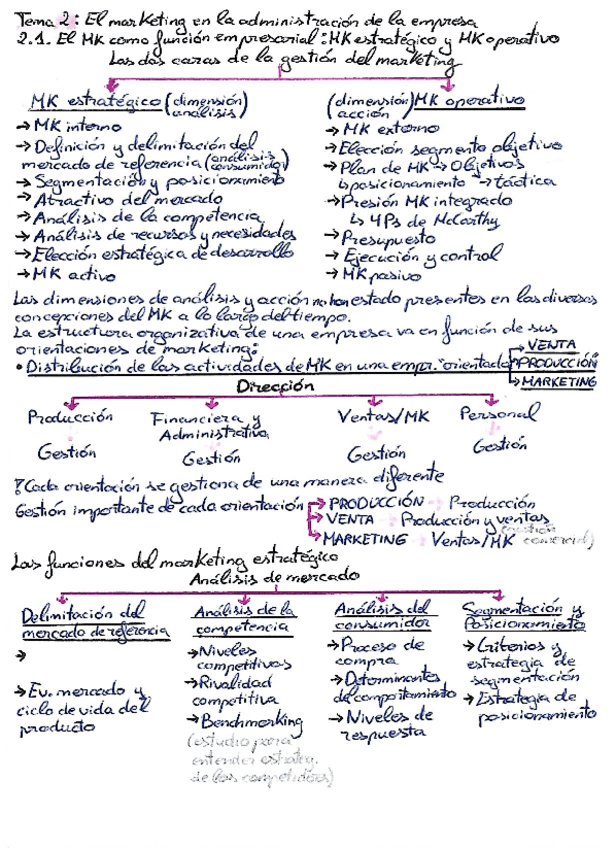 Tema 2: El marketing en la administración de la empresa
2.1. El MK como función empresarial: MK estratégico y MK operativo
Las dos caras de la gestión del marketing
MK estratégico (dimensión análisis)
→ MK interno
→ Definición y delimitación del
mercado de referencia (análisis consumidor)
→ Segmentación y posicionamiento
→ Atractivo del mercado
→ Análisis de la competencia
→ Análisis de recursos y necesidades
→ Elección estratégica de desarrollo
→ MK activo
(dimensión acción) MK operativo
→ MK externo
→ Elección segmento objetivo
→ Plan de MK → Objetivos
↳ posicionamiento → táctica
→ Presión MK integrado
↳ 4 Ps de McCarthy
→ Presupuesto
→ Ejecución y control
→ MK pasivo
Las dimensiones de análisis y acción no han estado presentes en las diversas
concepciones del MK a lo largo del tiempo.
La estructura organizativa de una empresa va en función de sus
orientaciones de marketing:
• Distribución de las actividades de MK en una empr. "orientada"
→ VENTA
→ PRODUCCIÓN
→ MARKETING
Dirección
Producción
Gestión
Financiera y
Administrativa
Gestión
Ventas/MK
Gestión
Personal
Gestión
Cada orientación se gestiona de una manera diferente
Gestión importante de cada orientación
→ PRODUCCIÓN → Producción
→ VENTA → Producción y ventas
→ MARKETING → Ventas/MK (gestión comercial)
Las funciones del marketing estratégico
Análisis de mercado
Delimitación del
mercado de referencia
→
→ Ev. mercado y
ciclo de vida del
producto
Análisis de la
competencia
→ Niveles
competitivos
→ Rivalidad
competitiva
→ Benchmarking
(estudio para
entender estrateg.
de los competidores)
Análisis del
consumidor
→ Proceso de
compra
→ Determinantes
del comportamiento
→ Niveles de
respuesta
Segmentación y
Posicionamiento
→ Criterios y
estrategia de
segmentación
→ Estrategia de
posicionamiento